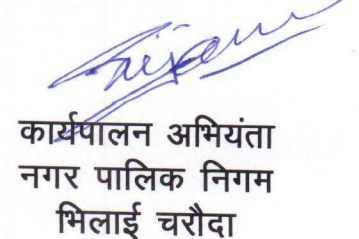 कार्यपालन अभियंता
नगर पालिक निगम
भिलाई चरौदा